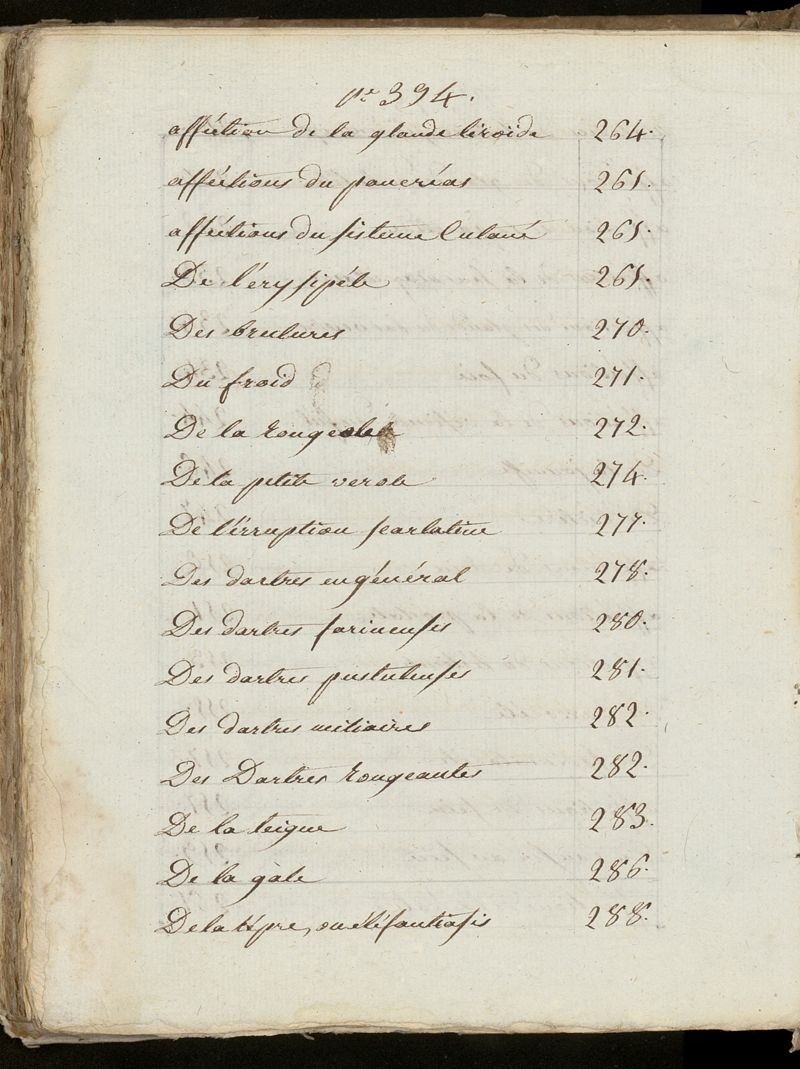 pe 394.
afféction de la glande tiroïde 264.
afféctions du pancréas 265.
afféctions du sisteme Cutané 265.
De l'érysipéle 265.
Des brulures 270.
Du froid 271.
De la rougeole 272.
De la petite verole 274.
De l'érruption scarlatine 277.
Des dartres en général 278.
Des dartres farineuses 280.
Des dartres pustuleuses 281.
Des dartres miliaires 282.
Des Dartres rongeantes 282.
De la teigne 283.
De la gale 286.
De la lépre, ou eléfantiasis 288.